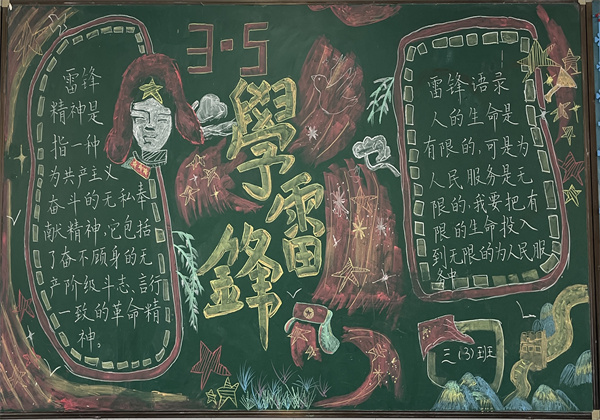 3·5
學
雷
鋒
雷锋
精神是
指一种
为共产主义
奋斗的无私奉
献精神,它包括
了奋不顾身的无
产阶级斗志、言行
一致的革命精
神。
雷锋语录
人的生命是
有限的,可是为
人民服务是无
限的,我要把有
限的生命投入
到无限的为人民服
务中
三(3)班